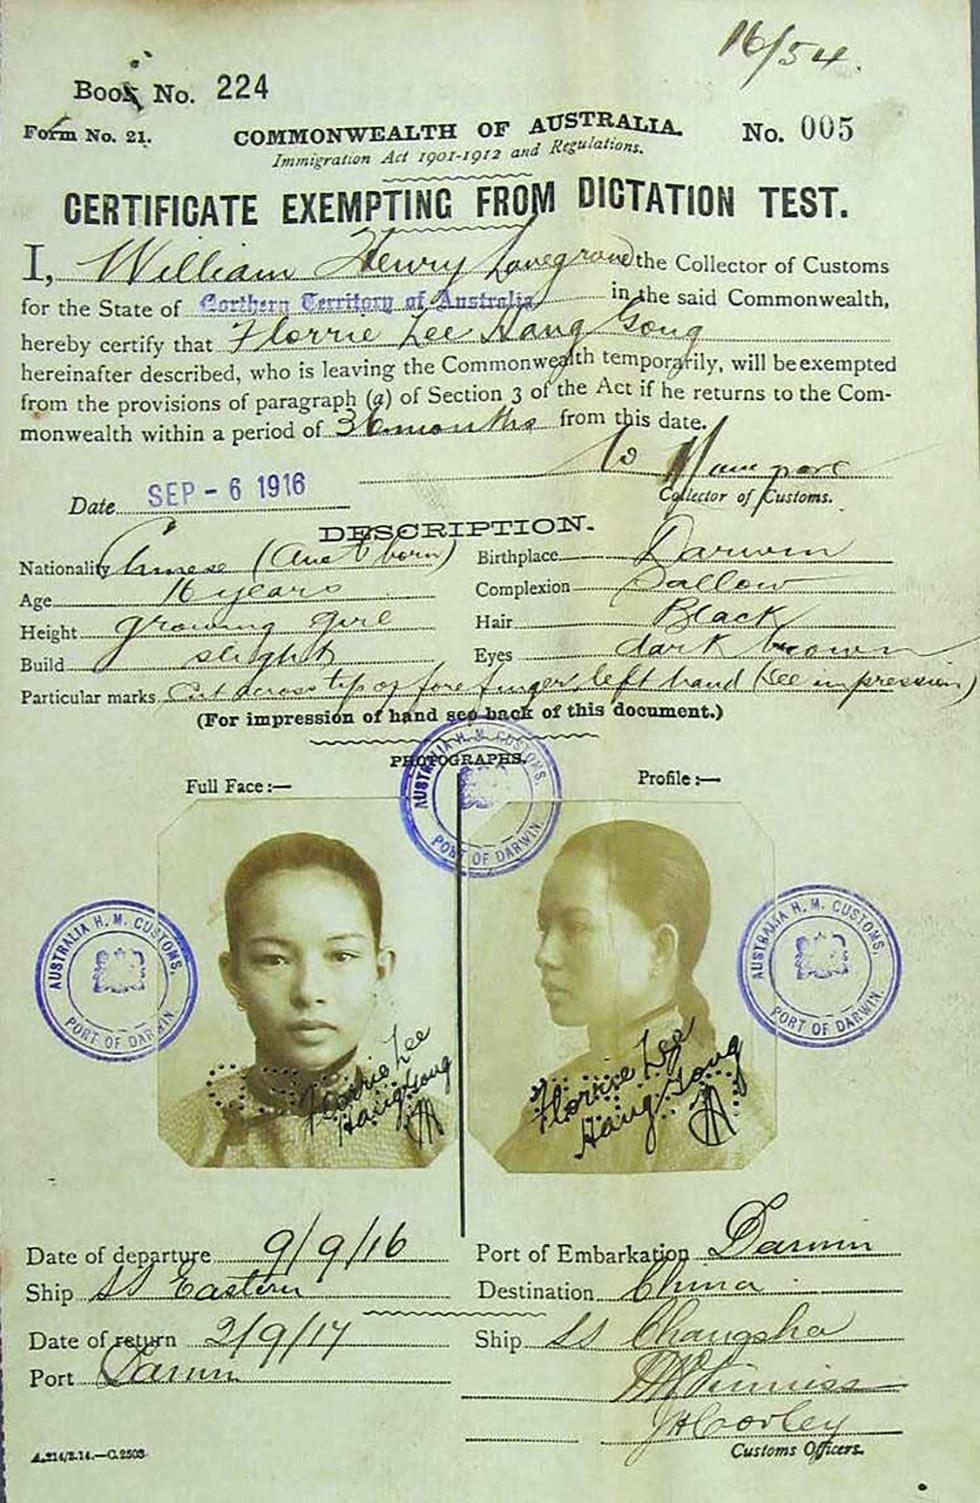 16/54.
Book No. 224
Form No. 21. COMMONWEALTH OF AUSTRALIA. No. 005
Immigration Act 1901-1912 and Regulations.
CERTIFICATE EXEMPTING FROM DICTATION TEST.
I, William Henry Lovegrove the Collector of Customs
for the State of Northern Territory of Australia in the said Commonwealth,
hereby certify that Florrie Lee Hang Gong
hereinafter described, who is leaving the Commonwealth temporarily, will be exempted
from the provisions of paragraph (a) of Section 3 of the Act if he returns to the Com-
monwealth within a period of 36 months from this date.
Date SEP - 6 1916 Collector of Customs.
DESCRIPTION.
Nationality Chinese (Aust born) Birthplace Darwin
Age 16 years Complexion Sallow
Height growing girl Hair Black
Build slight Eyes dark brown
Particular marks Cut across tip of fore finger, left hand (See impression)
(For impression of hand see back of this document.)
PHOTOGRAPHS.
Full Face:— Profile:—
AUSTRALIA H. M. CUSTOMS. PORT OF DARWIN.
AUSTRALIA H. M. CUSTOMS. PORT OF DARWIN.
AUSTRALIA H. M. CUSTOMS. PORT OF DARWIN.
Florrie Lee
Hang Gong
Florrie Lee
Hang Gong
Date of departure 9/9/16 Port of Embarkation Darwin
Ship SS Eastern Destination China
Date of return 2/9/17 Ship SS Changsha
Port Darwin
Customs Officers.
A.214/2.14.—C.2503